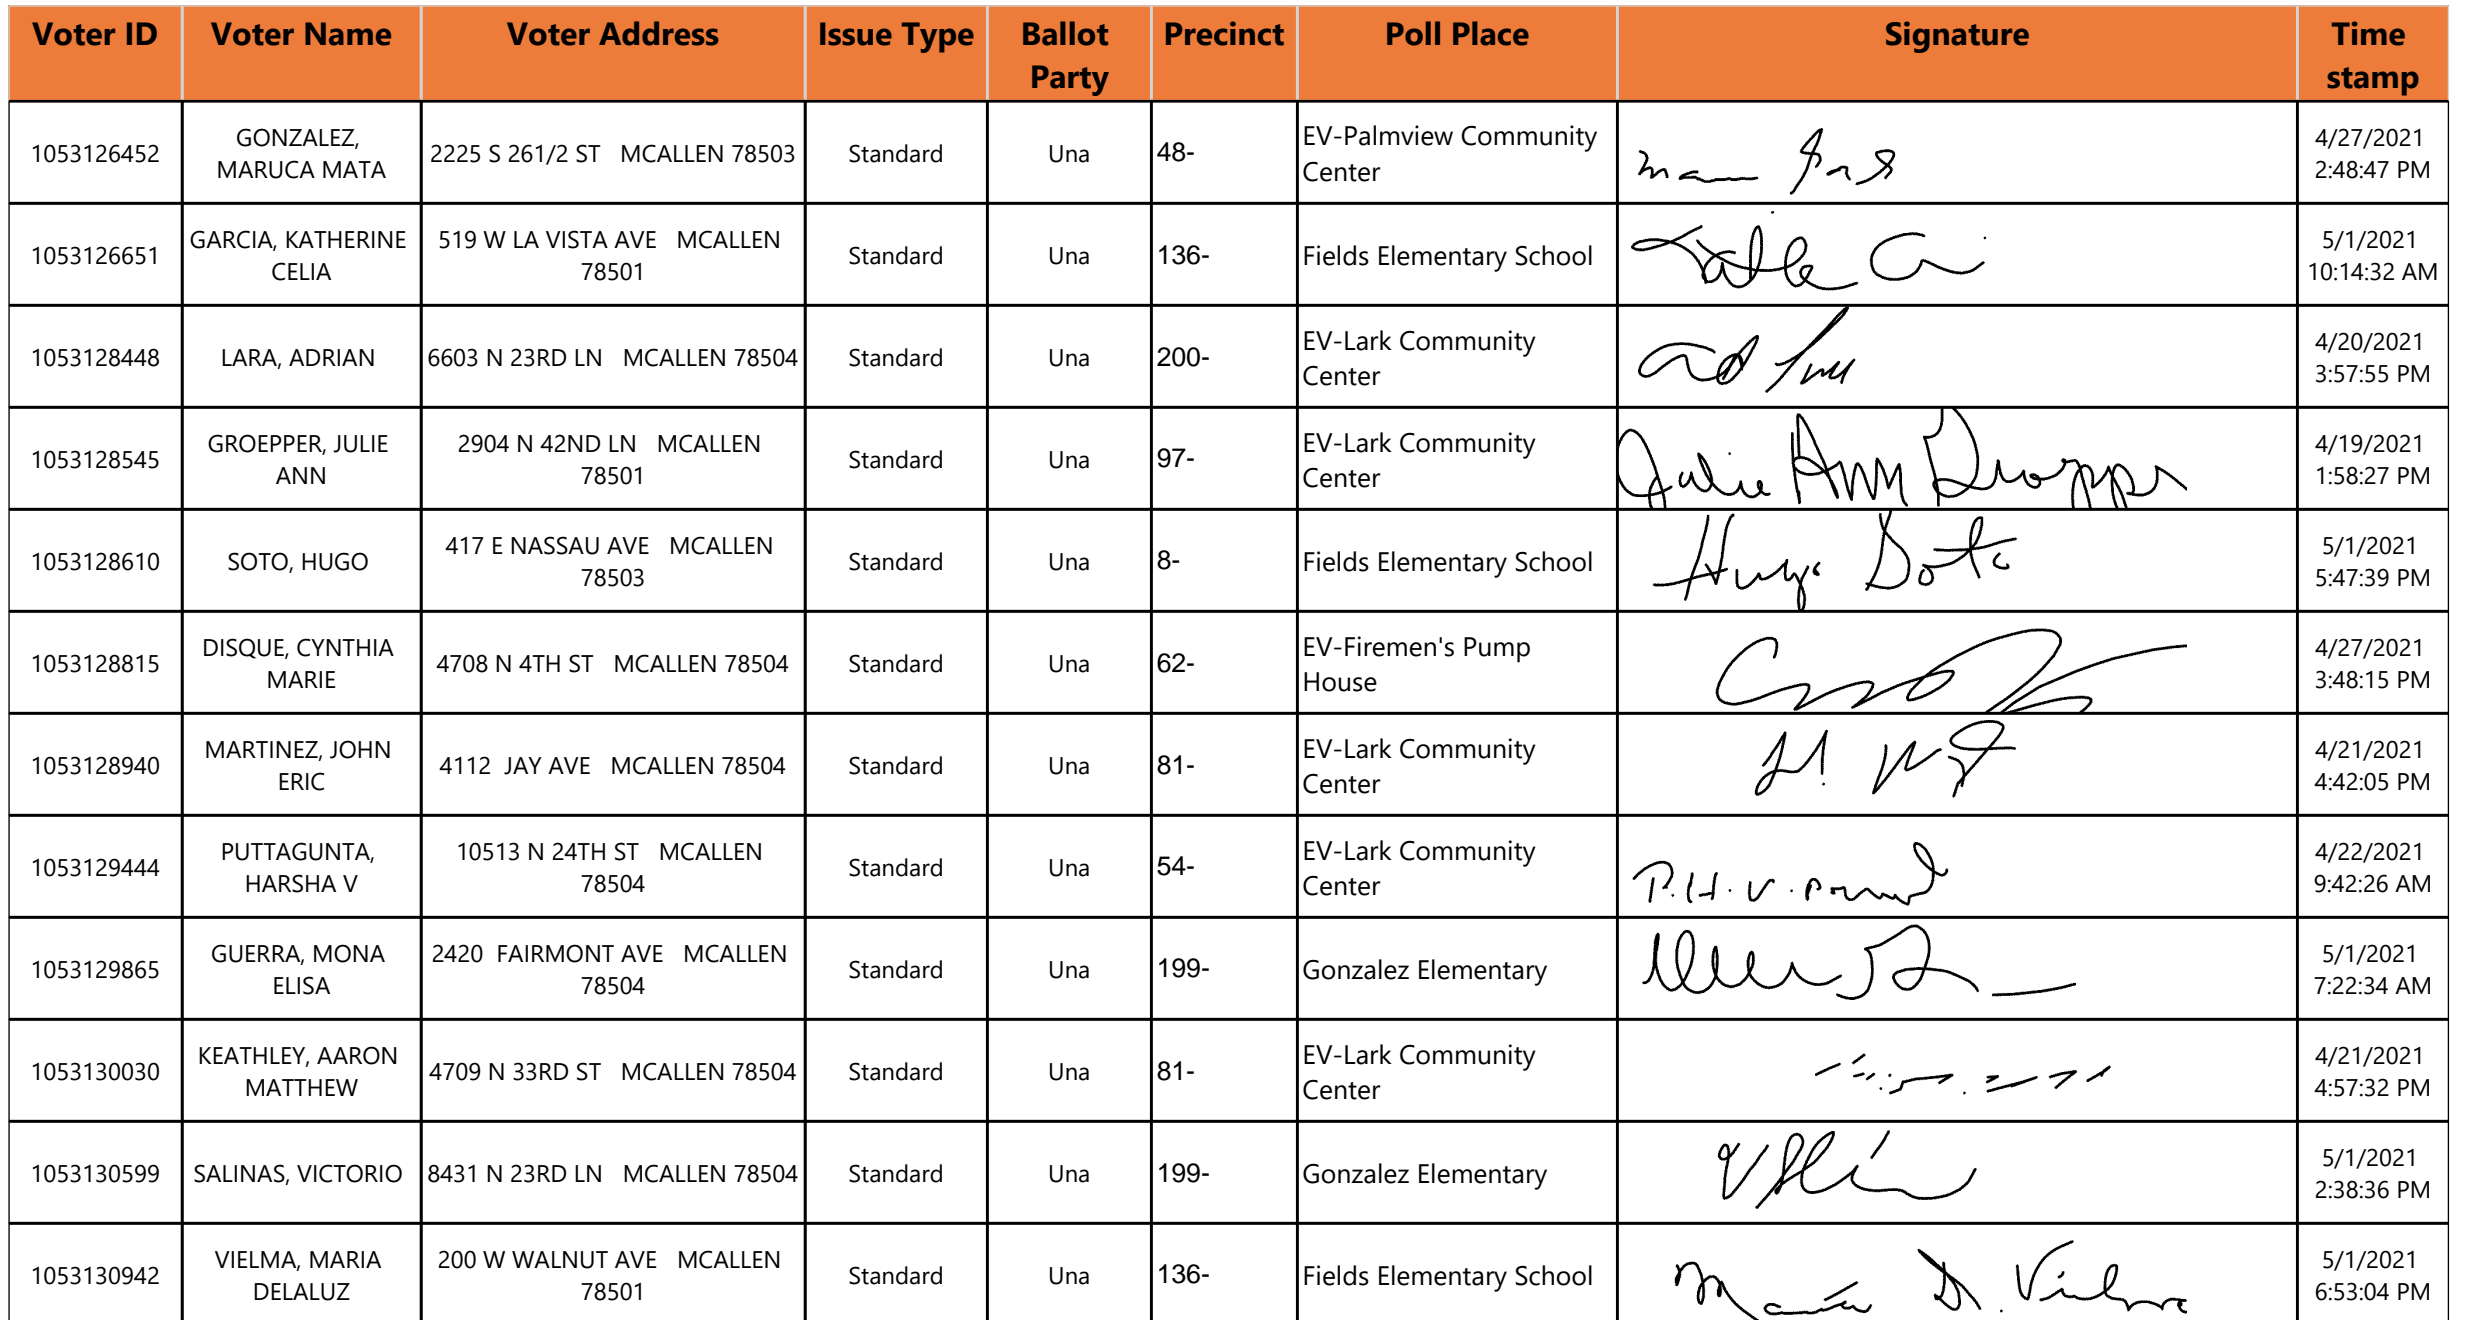 Voter ID Voter Name Voter Address Issue Type Ballot Party Precinct Poll Place Signature Time stamp
1053126452 GONZALEZ, MARUCA MATA 2225 S 261/2 ST MCALLEN 78503 Standard Una 48- EV-Palmview Community Center 4/27/2021 2:48:47 PM
1053126651 GARCIA, KATHERINE CELIA 519 W LA VISTA AVE MCALLEN 78501 Standard Una 136- Fields Elementary School 5/1/2021 10:14:32 AM
1053128448 LARA, ADRIAN 6603 N 23RD LN MCALLEN 78504 Standard Una 200- EV-Lark Community Center 4/20/2021 3:57:55 PM
1053128545 GROEPPER, JULIE ANN 2904 N 42ND LN MCALLEN 78501 Standard Una 97- EV-Lark Community Center Julie Ann Groepper 4/19/2021 1:58:27 PM
1053128610 SOTO, HUGO 417 E NASSAU AVE MCALLEN 78503 Standard Una 8- Fields Elementary School Hugo Soto 5/1/2021 5:47:39 PM
1053128815 DISQUE, CYNTHIA MARIE 4708 N 4TH ST MCALLEN 78504 Standard Una 62- EV-Firemen's Pump House 4/27/2021 3:48:15 PM
1053128940 MARTINEZ, JOHN ERIC 4112 JAY AVE MCALLEN 78504 Standard Una 81- EV-Lark Community Center 4/21/2021 4:42:05 PM
1053129444 PUTTAGUNTA, HARSHA V 10513 N 24TH ST MCALLEN 78504 Standard Una 54- EV-Lark Community Center P.H.V. 4/22/2021 9:42:26 AM
1053129865 GUERRA, MONA ELISA 2420 FAIRMONT AVE MCALLEN 78504 Standard Una 199- Gonzalez Elementary 5/1/2021 7:22:34 AM
1053130030 KEATHLEY, AARON MATTHEW 4709 N 33RD ST MCALLEN 78504 Standard Una 81- EV-Lark Community Center 4/21/2021 4:57:32 PM
1053130599 SALINAS, VICTORIO 8431 N 23RD LN MCALLEN 78504 Standard Una 199- Gonzalez Elementary 5/1/2021 2:38:36 PM
1053130942 VIELMA, MARIA DELALUZ 200 W WALNUT AVE MCALLEN 78501 Standard Una 136- Fields Elementary School Maria D. Vielma 5/1/2021 6:53:04 PM